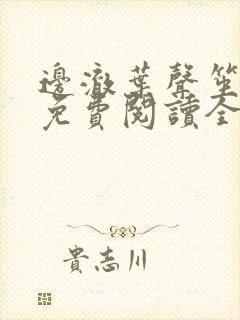 邊澈葉聲笙
免費閱讀全
貴志川